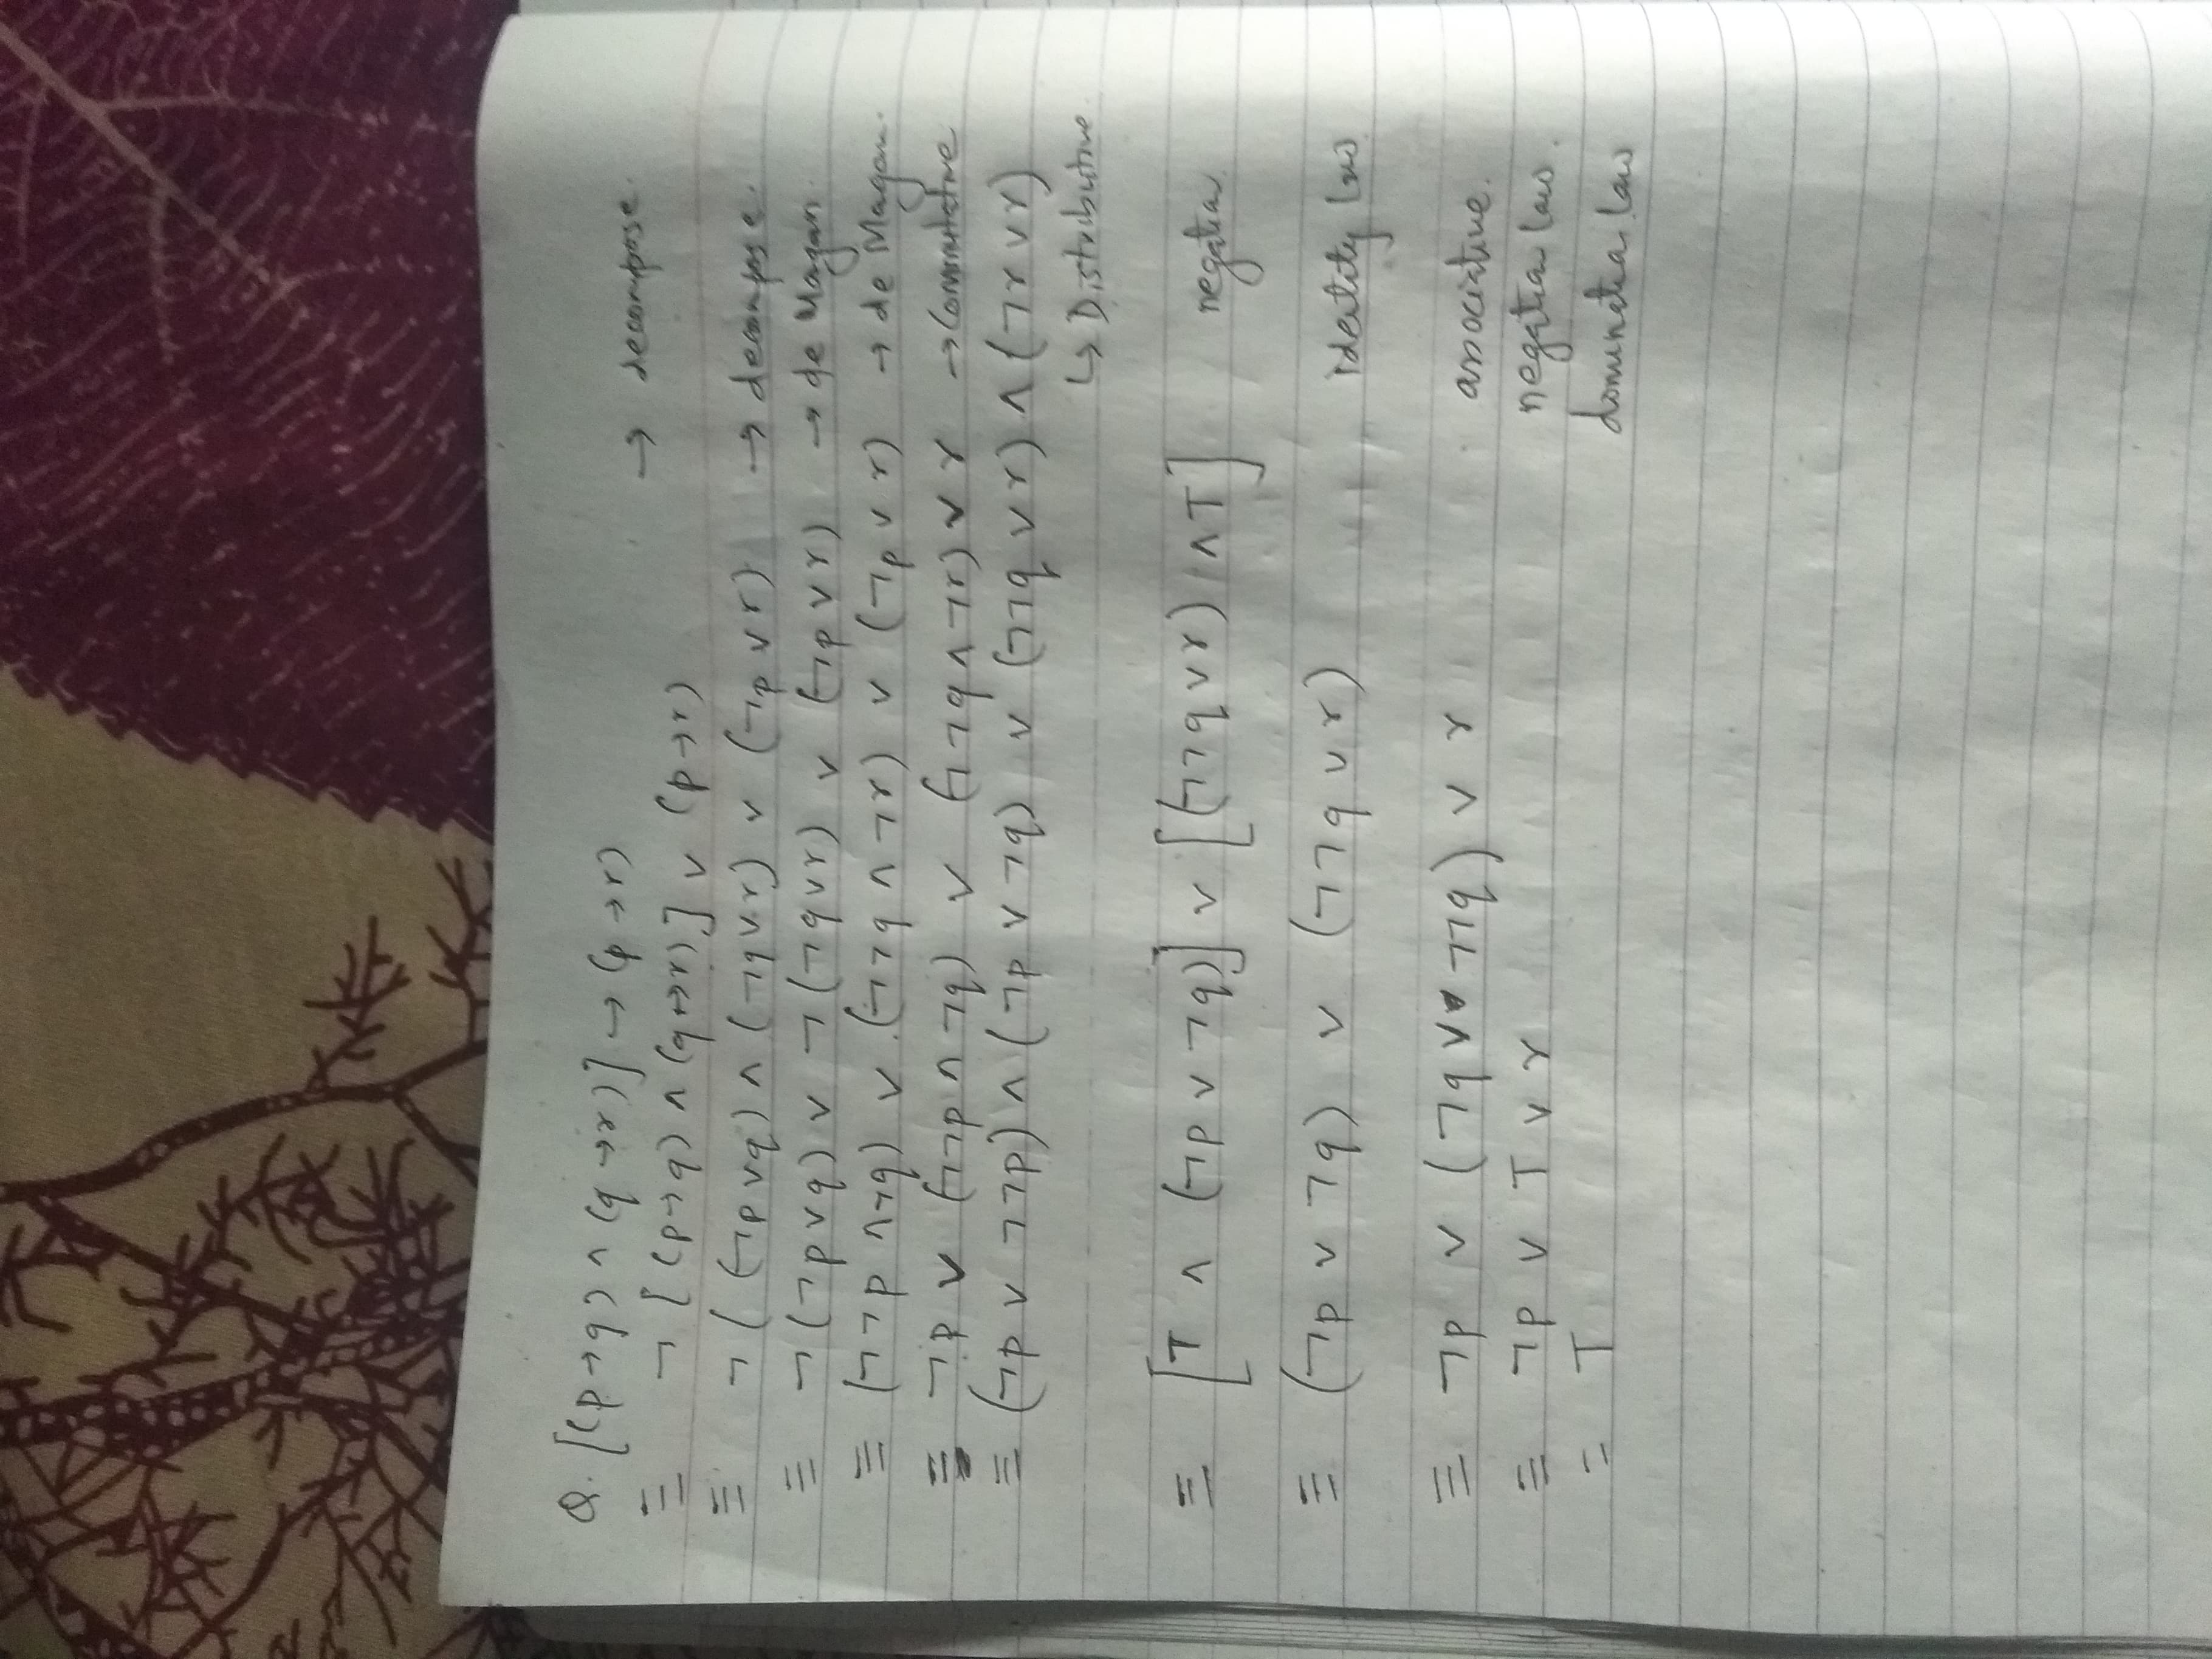 Q. [(p→q) ∧ (q→r)] → (p→r)
≡ ¬[(p→q) ∧ (q→r)] ∨ (p→r) → decompose.
≡ ¬((¬p∨q) ∧ (¬q∨r) ∨ (¬p∨r) → decompose.
≡ ¬(¬p∨q) ∨ ¬(¬q∨r) ∨ (¬p∨r) → de Morgan.
≡ (¬¬p∧¬q) ∨ (¬¬q∧¬r) ∨ (¬p∨r) → de Morgan.
≡ ¬p ∨ (¬¬p∧¬q) ∨ (¬¬q∧¬r)∨r → Commutative
≡ (¬p∨¬¬p)∧(¬p∨¬q) ∨ (¬¬q∨r)∧(¬r∨r)
↳ Distributive.
≡ [T ∧ (¬p∨¬q)] ∨ [(¬¬q∨r)∧T] negation.
≡ (¬p∨¬q) ∨ (¬¬q∨r) identity law
≡ ¬p ∨ (¬q∨¬¬q) ∨ r associative.
≡ ¬p ∨ T ∨ r negation law.
= T domination law